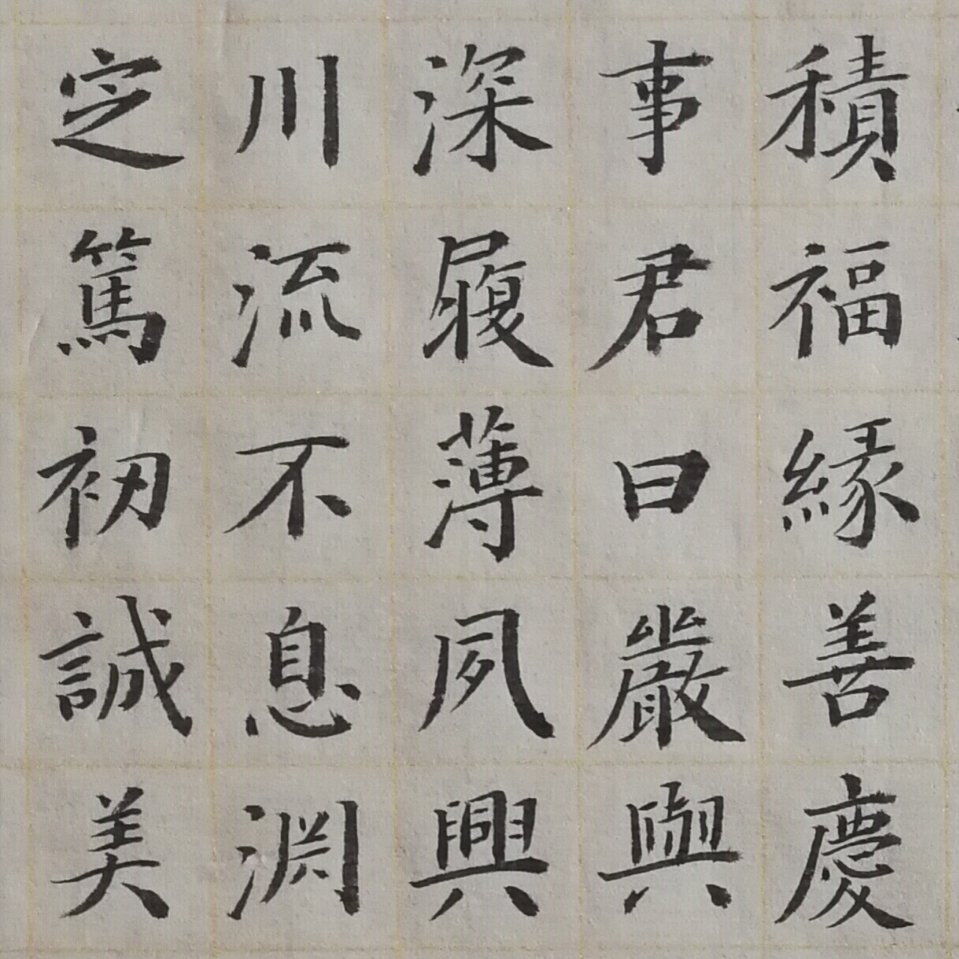 積福緣善慶
事君曰嚴與
深履薄夙興
川流不息淵
定篤初誠美